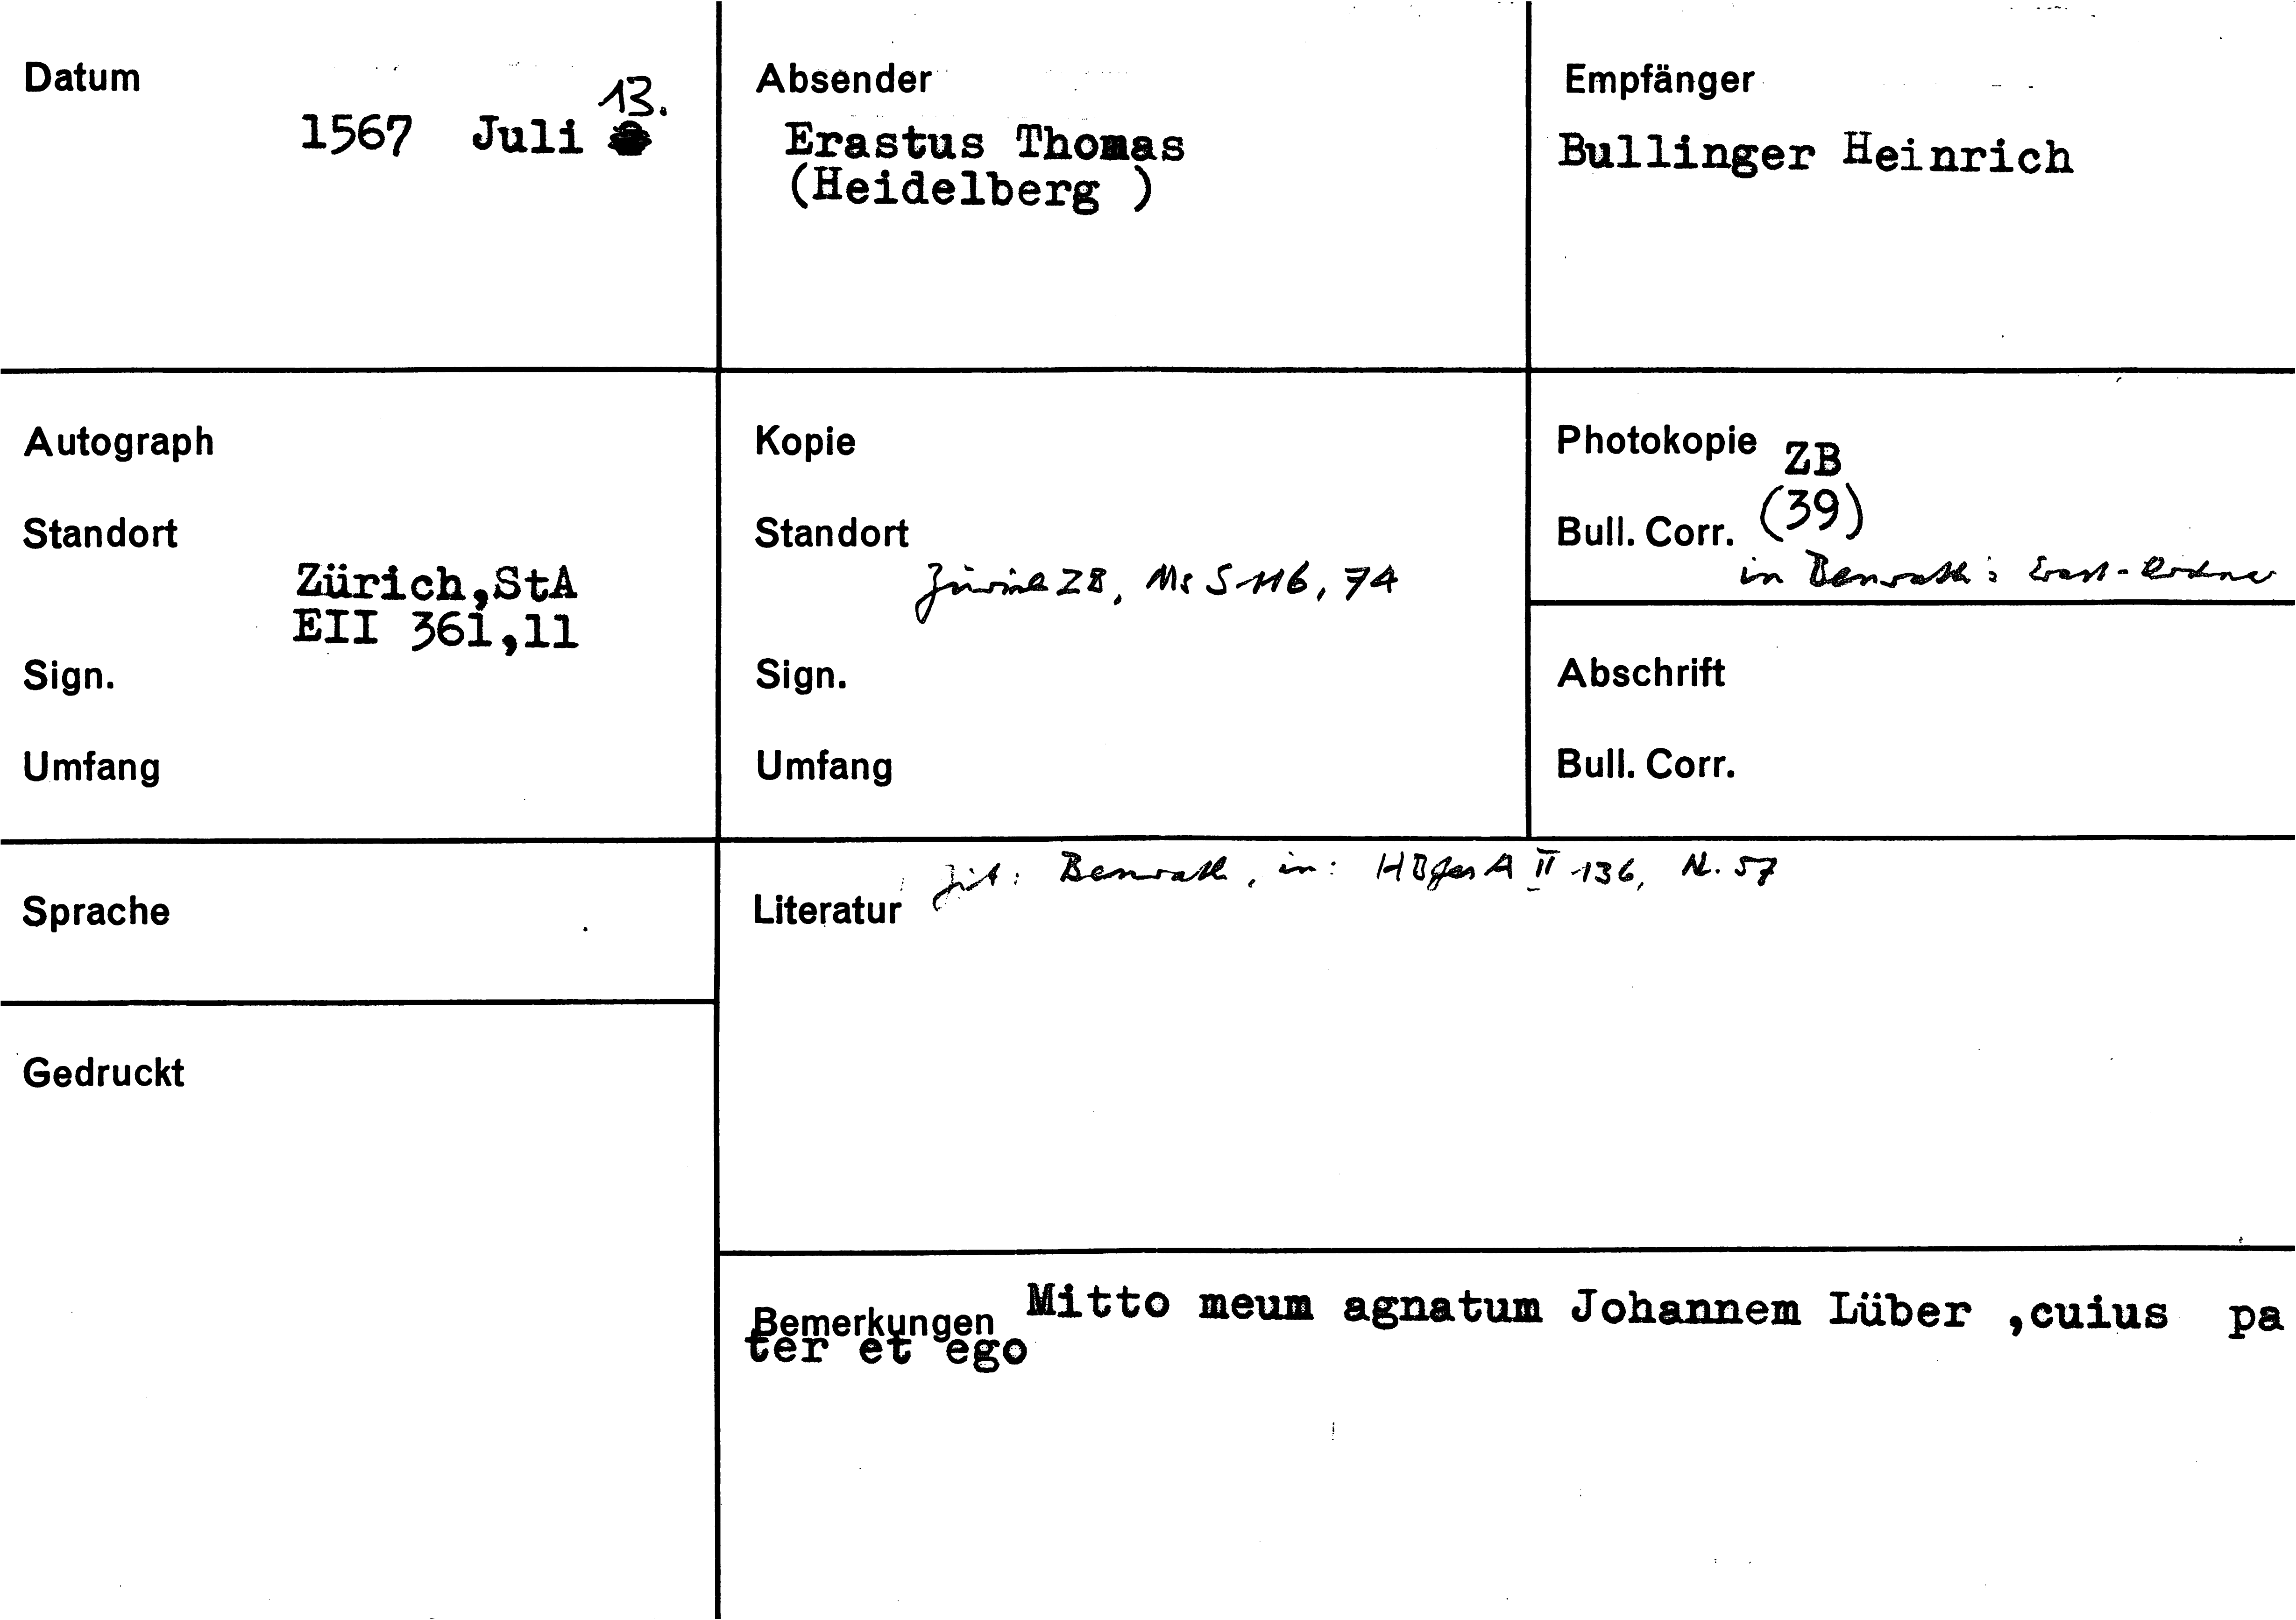 Datum
1567 Juli 13.
Absender
Erastus Thomas
(Heidelberg )
Empfänger
Bullinger Heinrich
Autograph
Standort
Zürich,StA
EII 361,11
Sign.
Umfang
Kopie
Standort
Zürich ZB, Ms S 116, 74
Sign.
Umfang
Photokopie ZB
Bull. Corr. (39)
in Benrath's Erast-Ordner
Abschrift
Bull. Corr.
Sprache
Gedruckt
Zit: Benrath, in: II 136, N. 57
Literatur
Bemerkungen Mitto meum agnatum Johannem Lüber ,cuius pa
ter et ego